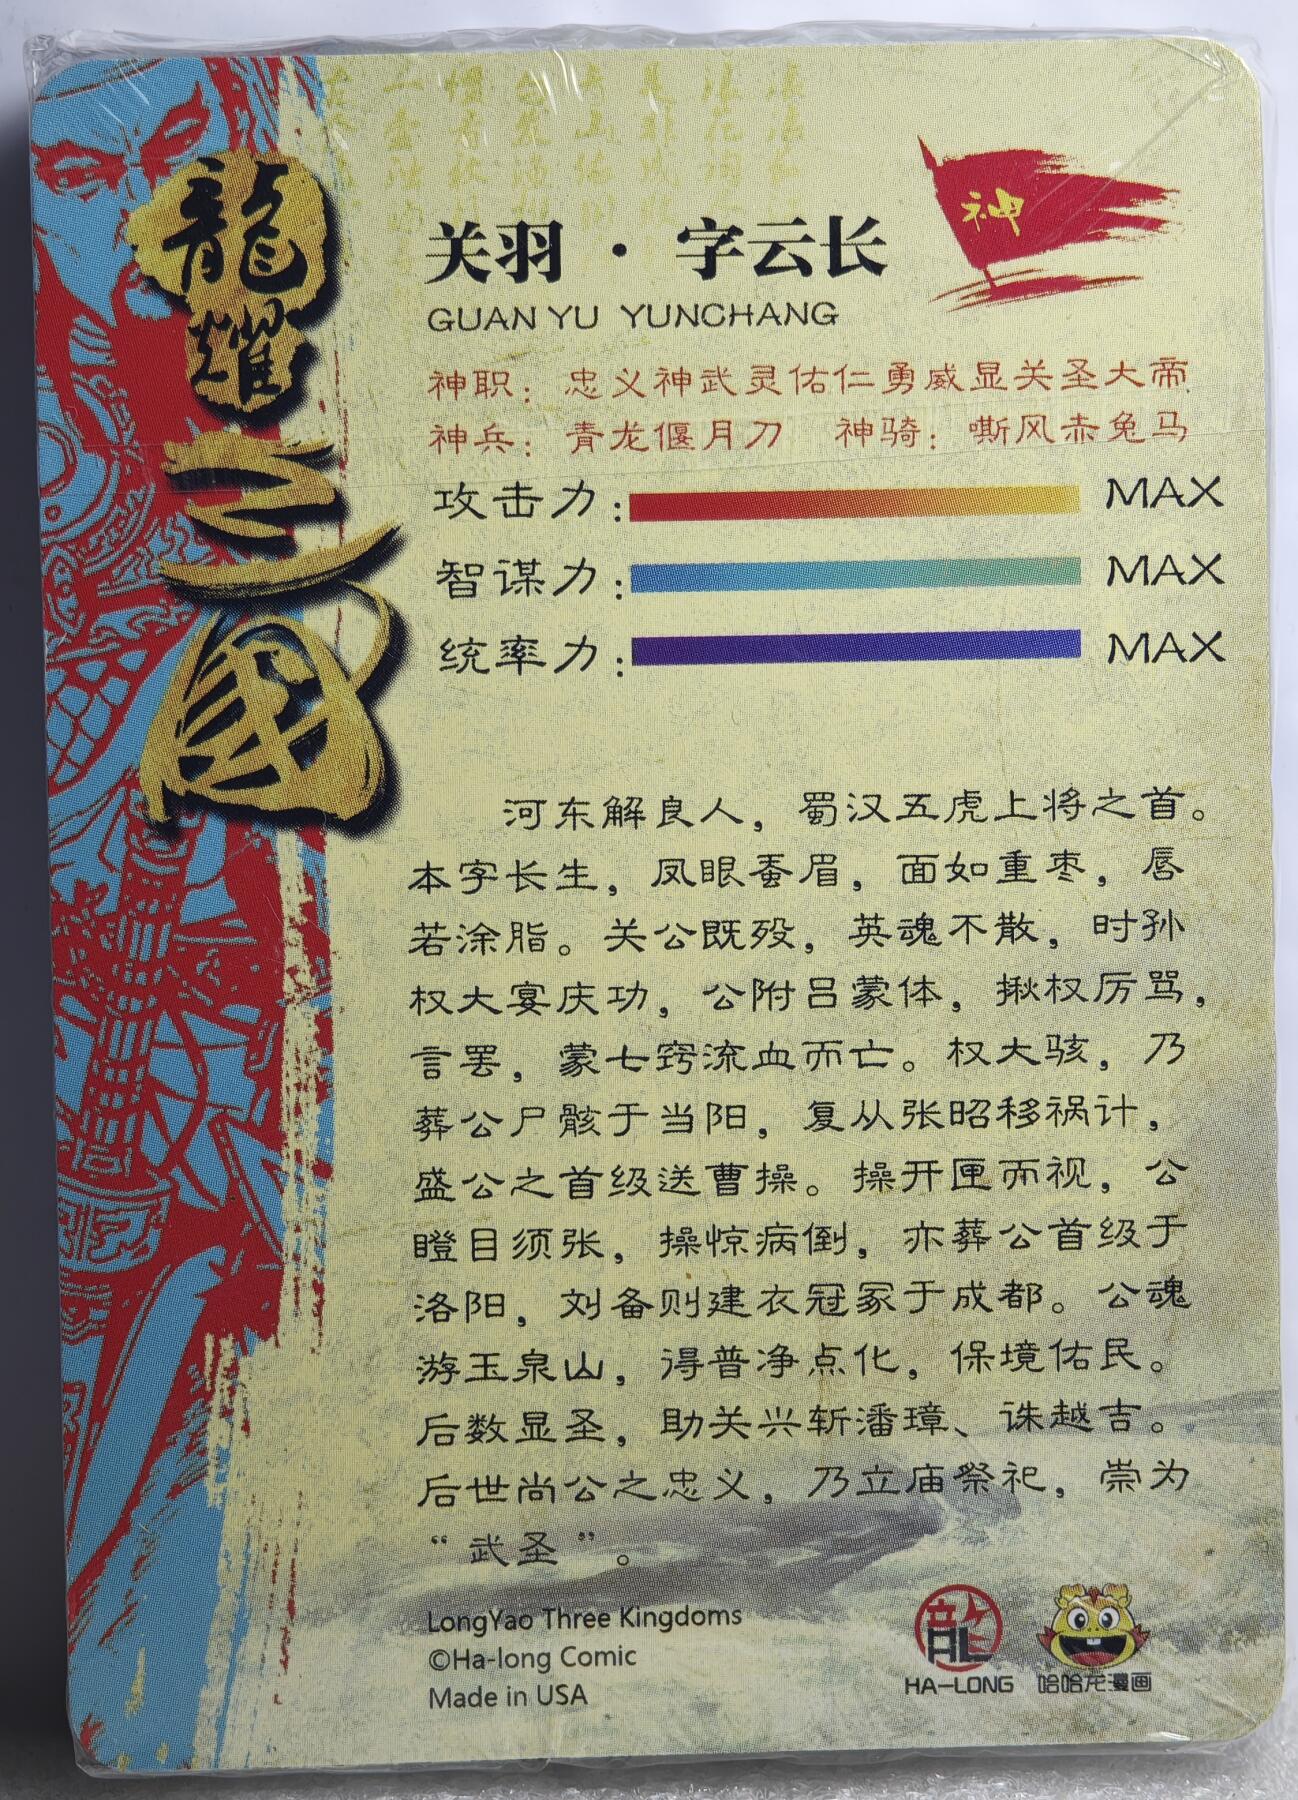 龍耀三國
神
关羽·字云长
GUAN YU YUNCHANG
神职：忠义神武灵佑仁勇威显关圣大帝
神兵：青龙偃月刀 神骑：嘶风赤兔马
攻击力：MAX
智谋力：MAX
统率力：MAX
河东解良人，蜀汉五虎上将之首。
本字长生，凤眼蚕眉，面如重枣，唇
若涂脂。关公既殁，英魂不散，时孙
权大宴庆功，公附吕蒙体，揪权厉骂，
言罢，蒙七窍流血而亡。权大骇，乃
葬公尸骸于当阳，复从张昭移祸计，
盛公之首级送曹操。操开匣而视，公
瞪目须张，操惊病倒，亦葬公首级于
洛阳，刘备则建衣冠冢于成都。公魂
游玉泉山，得普净点化，保境佑民。
后数显圣，助关兴斩潘璋、诛越吉。
后世尚公之忠义，乃立庙祭祀，崇为
“武圣”。
LongYao Three Kingdoms
©Ha-long Comic
Made in USA
HA-LONG 哈哈龙漫画